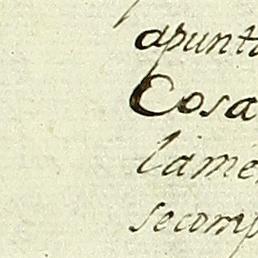 apunta
Cosa
lamen
secomp